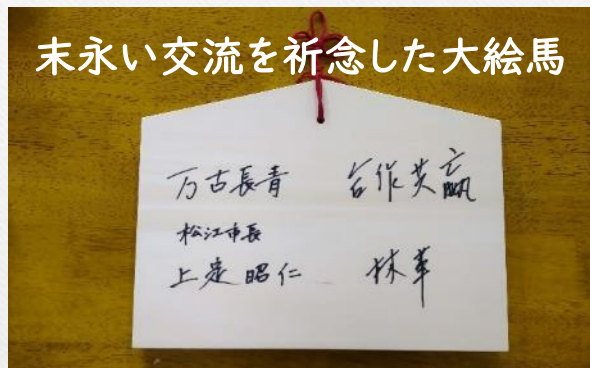 末永い交流を祈念した大絵馬
万古長青 合作共赢
松江市長
上定昭仁 林革